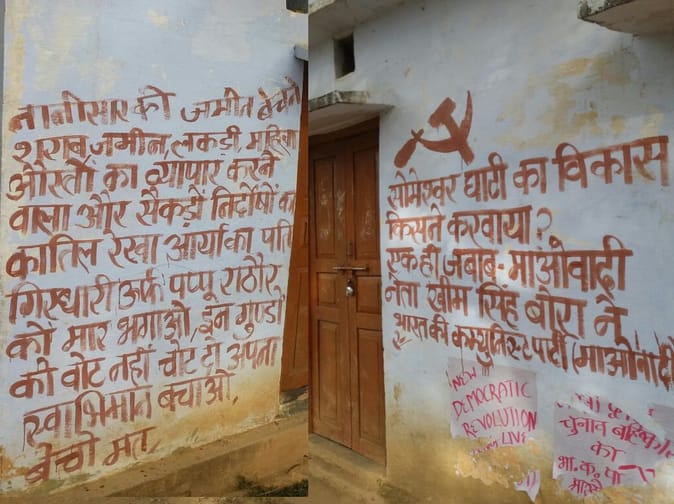 नानीसार की जमीन बेचने
शराब, जमीन, लकड़ी, महिला
औरतों का व्यापार करने
वाला और सैकड़ों निर्दोषों का
कातिल रेखा आर्या का पति
गिरधारी उर्फ पप्पू राठौर
को मार भगाओ, इन गुण्डों
को वोट नहीं चोट दो अपना
स्वाभिमान बचाओ,
बेचो मत
सोमेश्वर घाटी का विकास
किसने करवाया?
एक ही जबाब- माओवादी
नेता खीम सिंह बोरा ने
भारत की कम्युनिस्ट पार्टी (माओवादी)
NEW
DEMOCRATIC
REVOLUTION
LIVE
चुनाव बहिष्कार
का
भा.क.पा